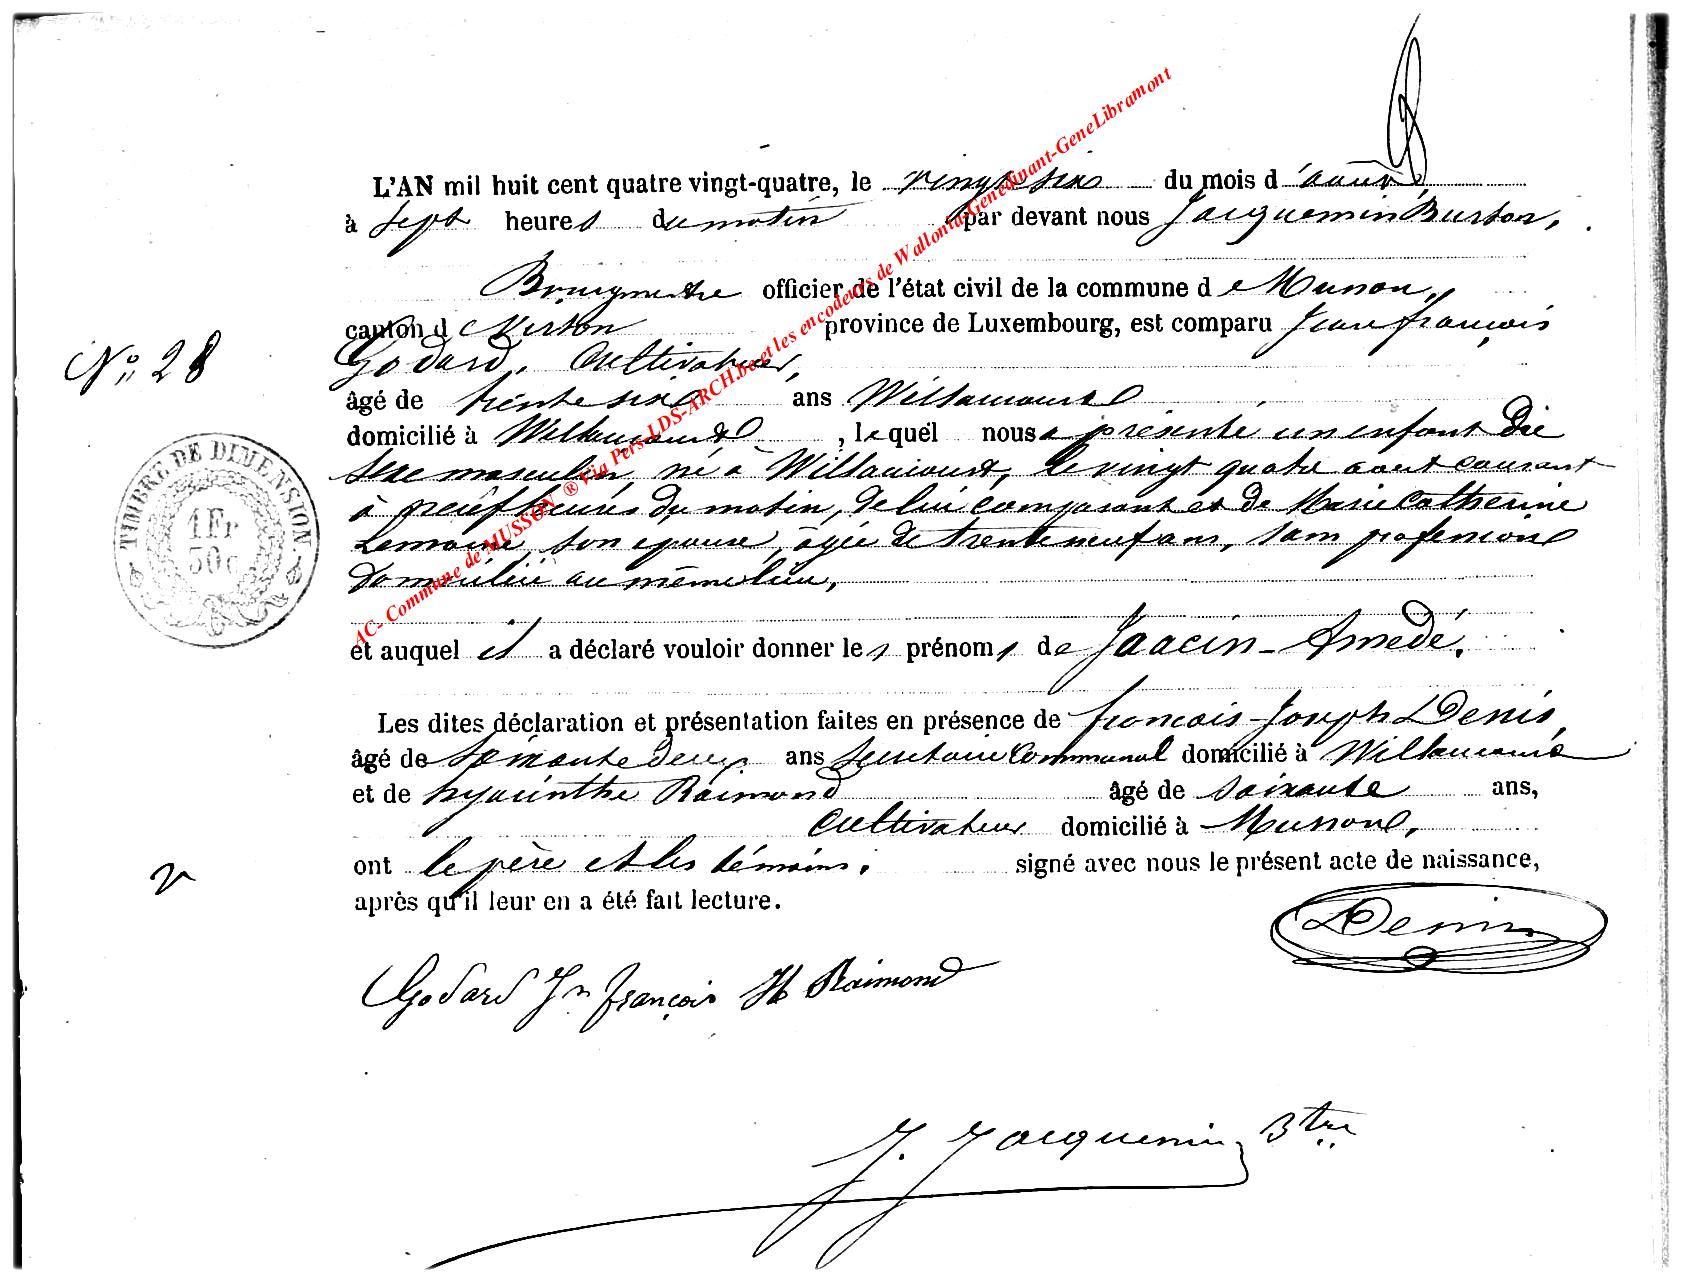 L'AN mil huit cent quatre vingt-quatre, le vingt six du mois d'août,
à sept heures du matin par devant nous Jacquemin Burton,
Bourgmestre officier de l'état civil de la commune de Musson,
canton de Virton province de Luxembourg, est comparu Jean françois
Godard, Cultivateur,
âgé de trente six ans Willancourt
domicilié à Willancourt, lequel nous a présenté un enfant Du
sexe masculin, né à Willancourt, le vingt quatre aout courant
à neuf heures du matin, de lui comparant et de Marie Catherine
Lemoine, son epouse, âgée de trente neuf ans, sans profession
domiciliée au même lieu,
et auquel il a déclaré vouloir donner les prénoms de Jaacin-Amedé.
Les dites déclaration et présentation faites en présence de françois-Joseph Denis,
âgé de soixante deux ans secretaire Communal domicilié à Willancourt
et de hyacinthe Raimond âgé de soixante ans,
Cultivateur domicilié à Musson,
ont le père et les témoins, signé avec nous le présent acte de naissance,
après qu'il leur en a été fait lecture.
Denis
Godard Jn françois H Raimond
J. Jacquemin Btre
No 28
TIMBRE DE DIMENSION.
1 Fr
30 c
AC- Commune de MUSSON ® Via Pers-LDS-ARCH.be et les encodeurs de Wallonia-Genedinant-GeneLibramont